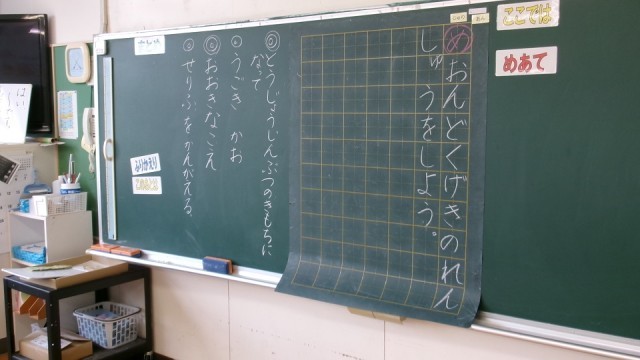 ここでは
めあて
めおんどくげきのれん
しゅうをしよう。
◎とうじょうじんぶつのきもちに
なって
うごき かお
◎おおきなこえ
せりふをかんがえる。
ふりかえり